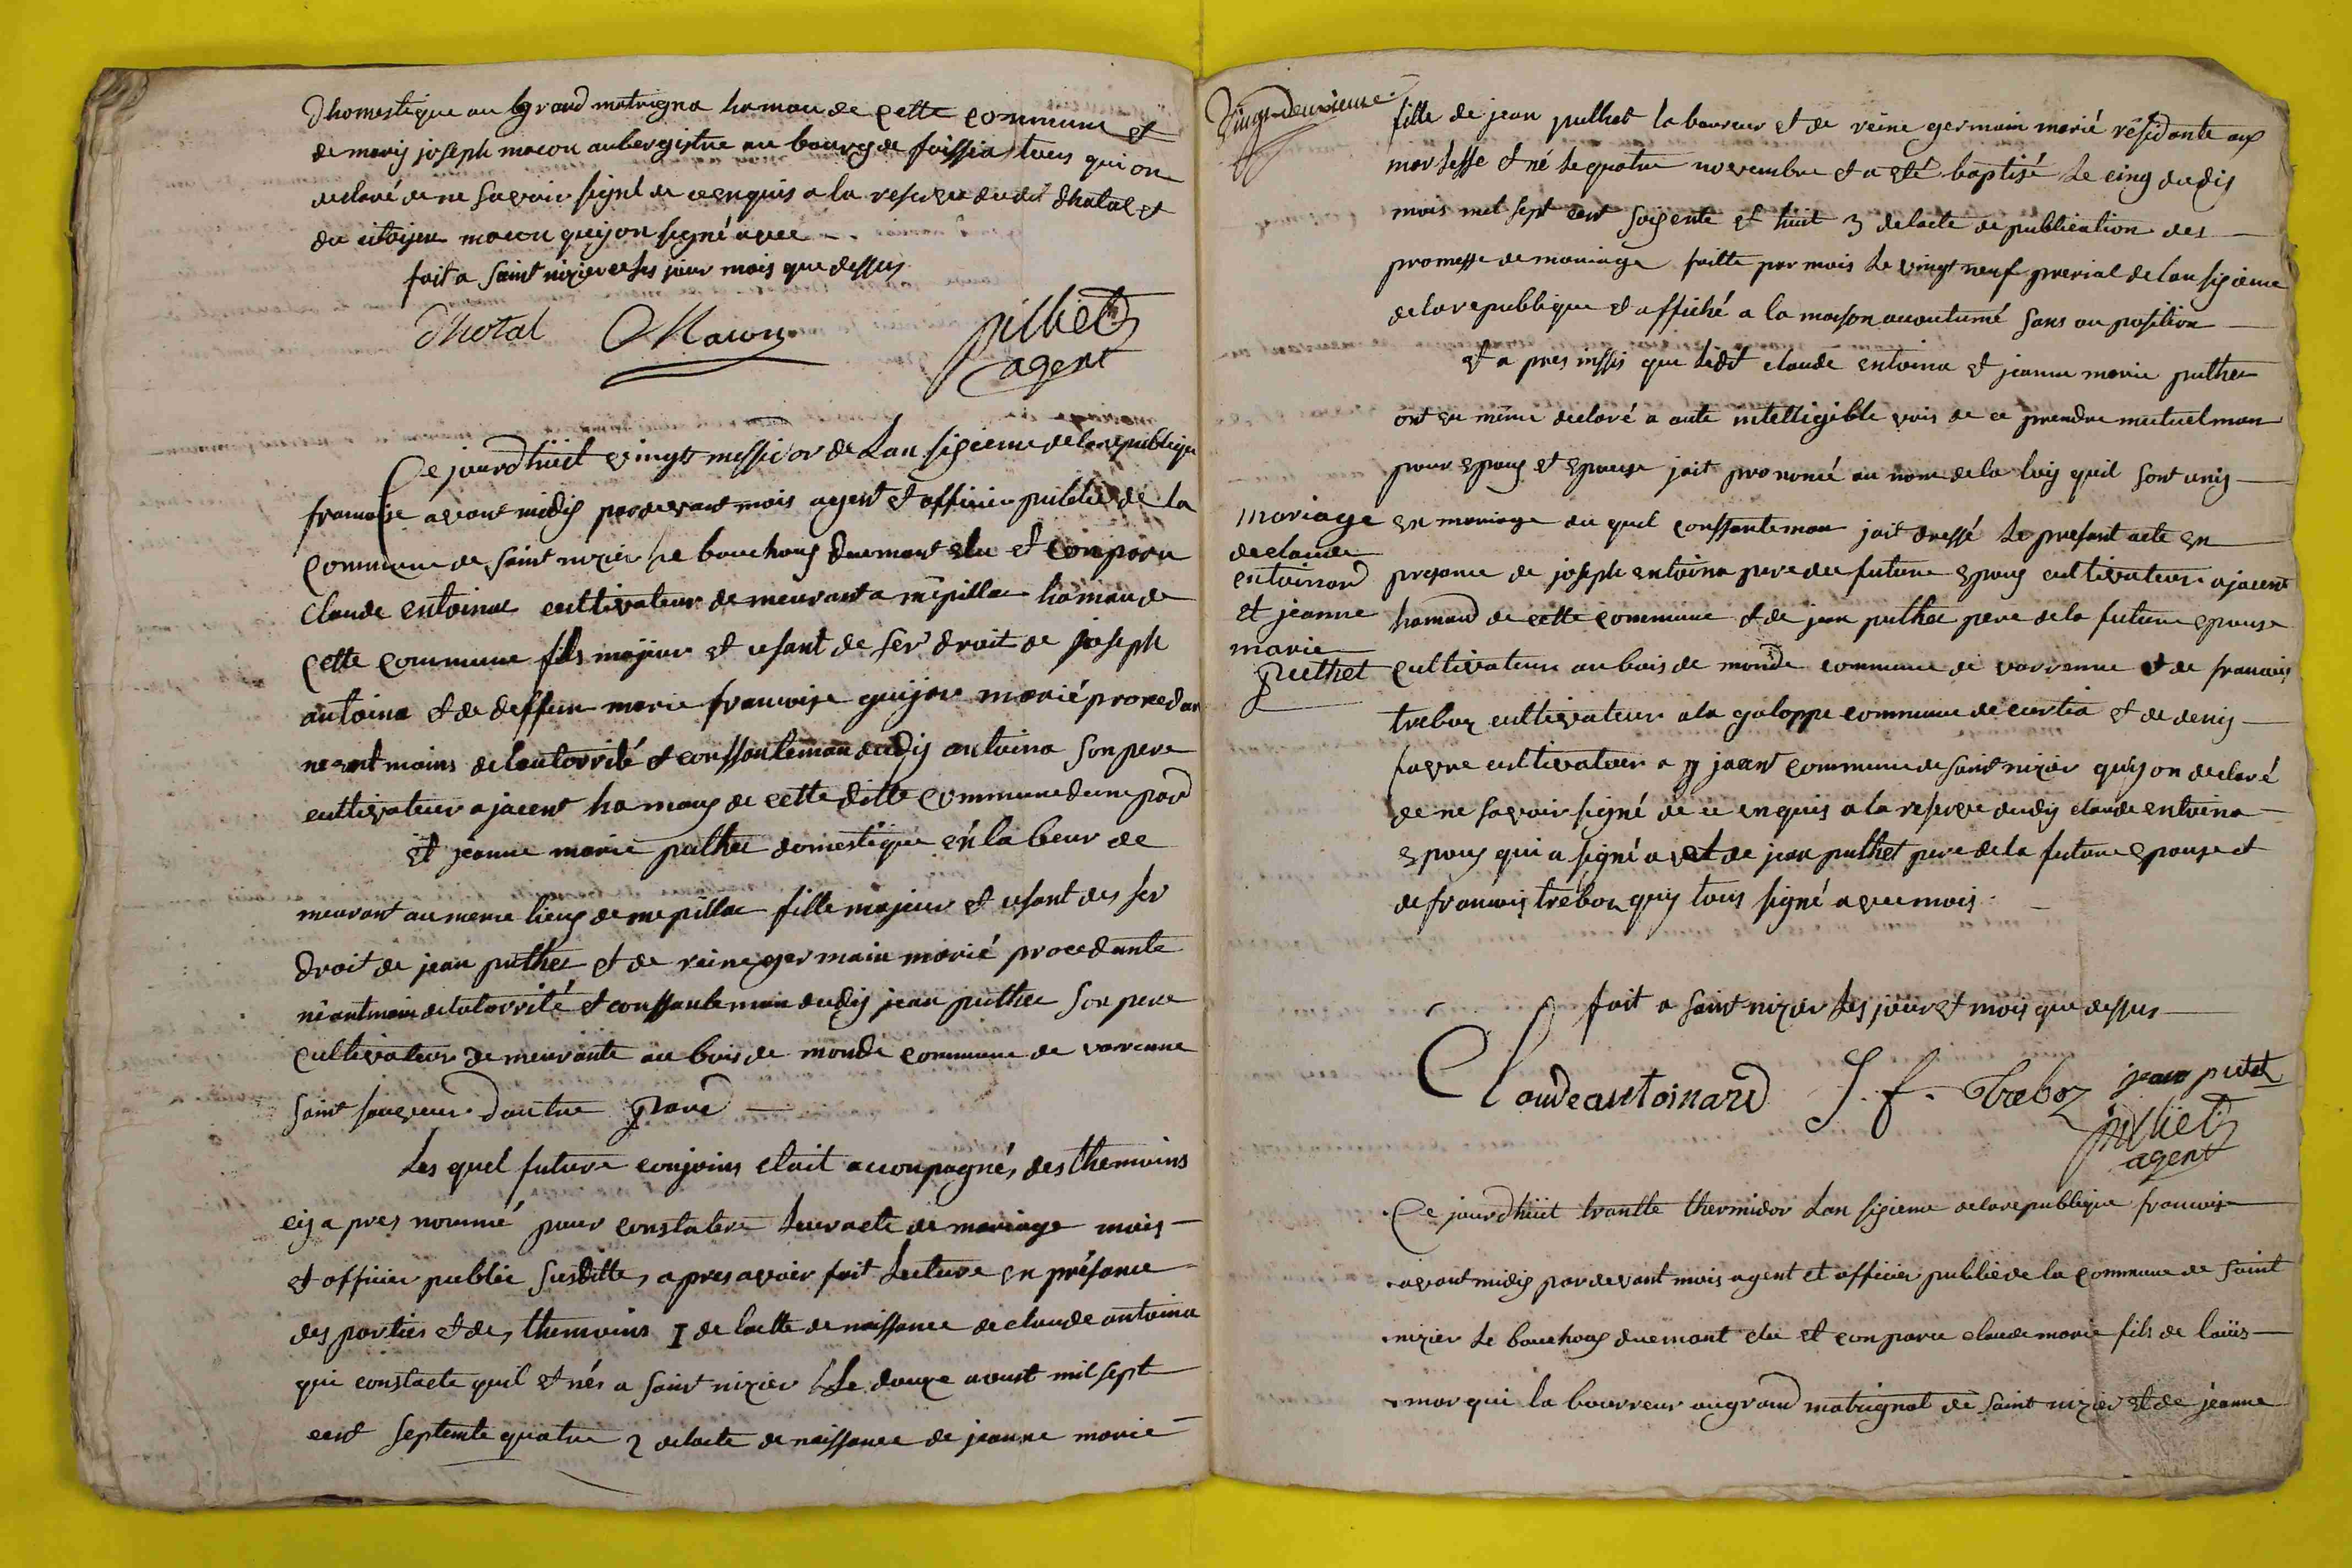 Dhomestique au grand matrigna hamau de cette commune et
de maris joseph macon aubergistre au bourg de foissia tous qui on
declaré de ne savoir signé de ce enquis a la reserve dudit dhotal et
du citoijen macon quij on signé avec
fait a saint nizier les jour mois que dessus
Dhotal Macon pilliet
agent
Ce jourdhuit vingt messidor de Lan sixieme de la republique
francaise avant midij par devant mois agent et officier public de la
commune de saint nizier le bouchoux duemant elu et conparu
Claude entoina cultivateur demeurant a mépilla hamau de
cette commune fils majeur et usant de ser droit de joseph
antoina et de deffun marie francoise guijon marié procedan
neantmoins de lautorrité et conssanteman dudij antoina son pere
cultivateur ajacent hamaux de cette ditte commune dune pard
et jeanne marie puthet domestique en la beur de
meurant au meme lieux de mepilla fille majeur et usant des ser
droit de jean puthet et de reine germain marié procedante
néantmoin de latorrité et conssanteman dudij jean puthet son pere
cultivateur demeurante au bois de monde commune de varenne
saint sauveur dautre pard
Les quel future conjoins etait accompagné, des themoins
cij a pres nommé pour constatere leur acte de mariage mois
et officier public susditte, apres avoir fait lecture en présance
des parties et de, themoins 1 de lactte de naissance de claude antoina
qui constacte quil et nés a saint nizier Le douze aoust mil sept
cent septente quatre 2 de lacte de naissance de jeanne marie
Vingt deuxieme
fille de jean puthet laboureur et de reine germain marié résidante aux
mor lesse et né le quatre novembre et a eté baptisé le cinq dudij
mois mil sept cent soixente et huit 3 de lacte de publication des
promesse de mariage faitte par mois le vingt neuf prerial de lan sixieme
de la republique et affiché a la maison acoutumé sans ou position
et a pres inssis que ledit claude entoina et jeanne marie puthet
ont eu même declaré a aute intelligible vois de ce prendre mutuelman
pour epoux et epouse jait prononcé au nom de la loij quil sont unis
mariage
de claude
entoinard
et jeanne
marie
puthet
en mariage du quel conssanteman jait dressé le presant acte en
presance de joseph entoina pere du future epoux cultivateur ajacent
hamaud de cette commune et de jean puthet pere de la future epouse
cultivateur au bois de monde commune de varenne et de francois
treboz cultivateur a la galoppe commune de curtia et de denis
favre cultivateur a jaant commune de saint nizier quij on declaré
de ne savoir signé de ce enquis a la reserve dudij claude entoina
epoux qui a signé avet de jean puthet pere de la future epouse et
de francois treboz quij tous signé avec mois
fait a saint nizier les jour et mois que dessus
Claude antoinard J. f. Treboz jean putet
pilliet
agent
Ce jourdhuit trantte thermidor Lan sixieme de la republique francoise
avant midij par devant mois agent et officier public de la commune de saint
nizier le bouchoux duemant elu et conparu claude marie fils de louis
marqui la bourreur au grand matrignat de saint nizier et de jéanne